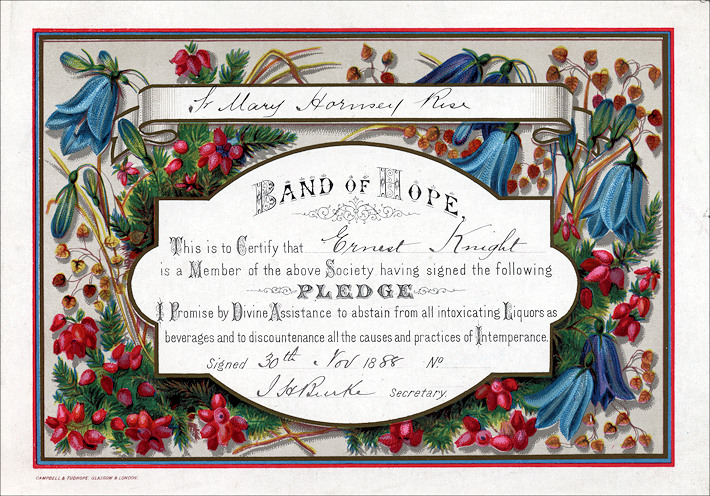 St Mary Hornsey Rise
BAND OF HOPE,
This is to Certify that Ernest Knight
is a Member of the above Society having signed the following
PLEDGE
I Promise by Divine Assistance to abstain from all intoxicating Liquors as
beverages and to discountenance all the causes and practices of Intemperance.
Signed 30th Nov 1888 No
J H Burke Secretary.
CAMPBELL & TUDHOPE, GLASGOW & LONDON.